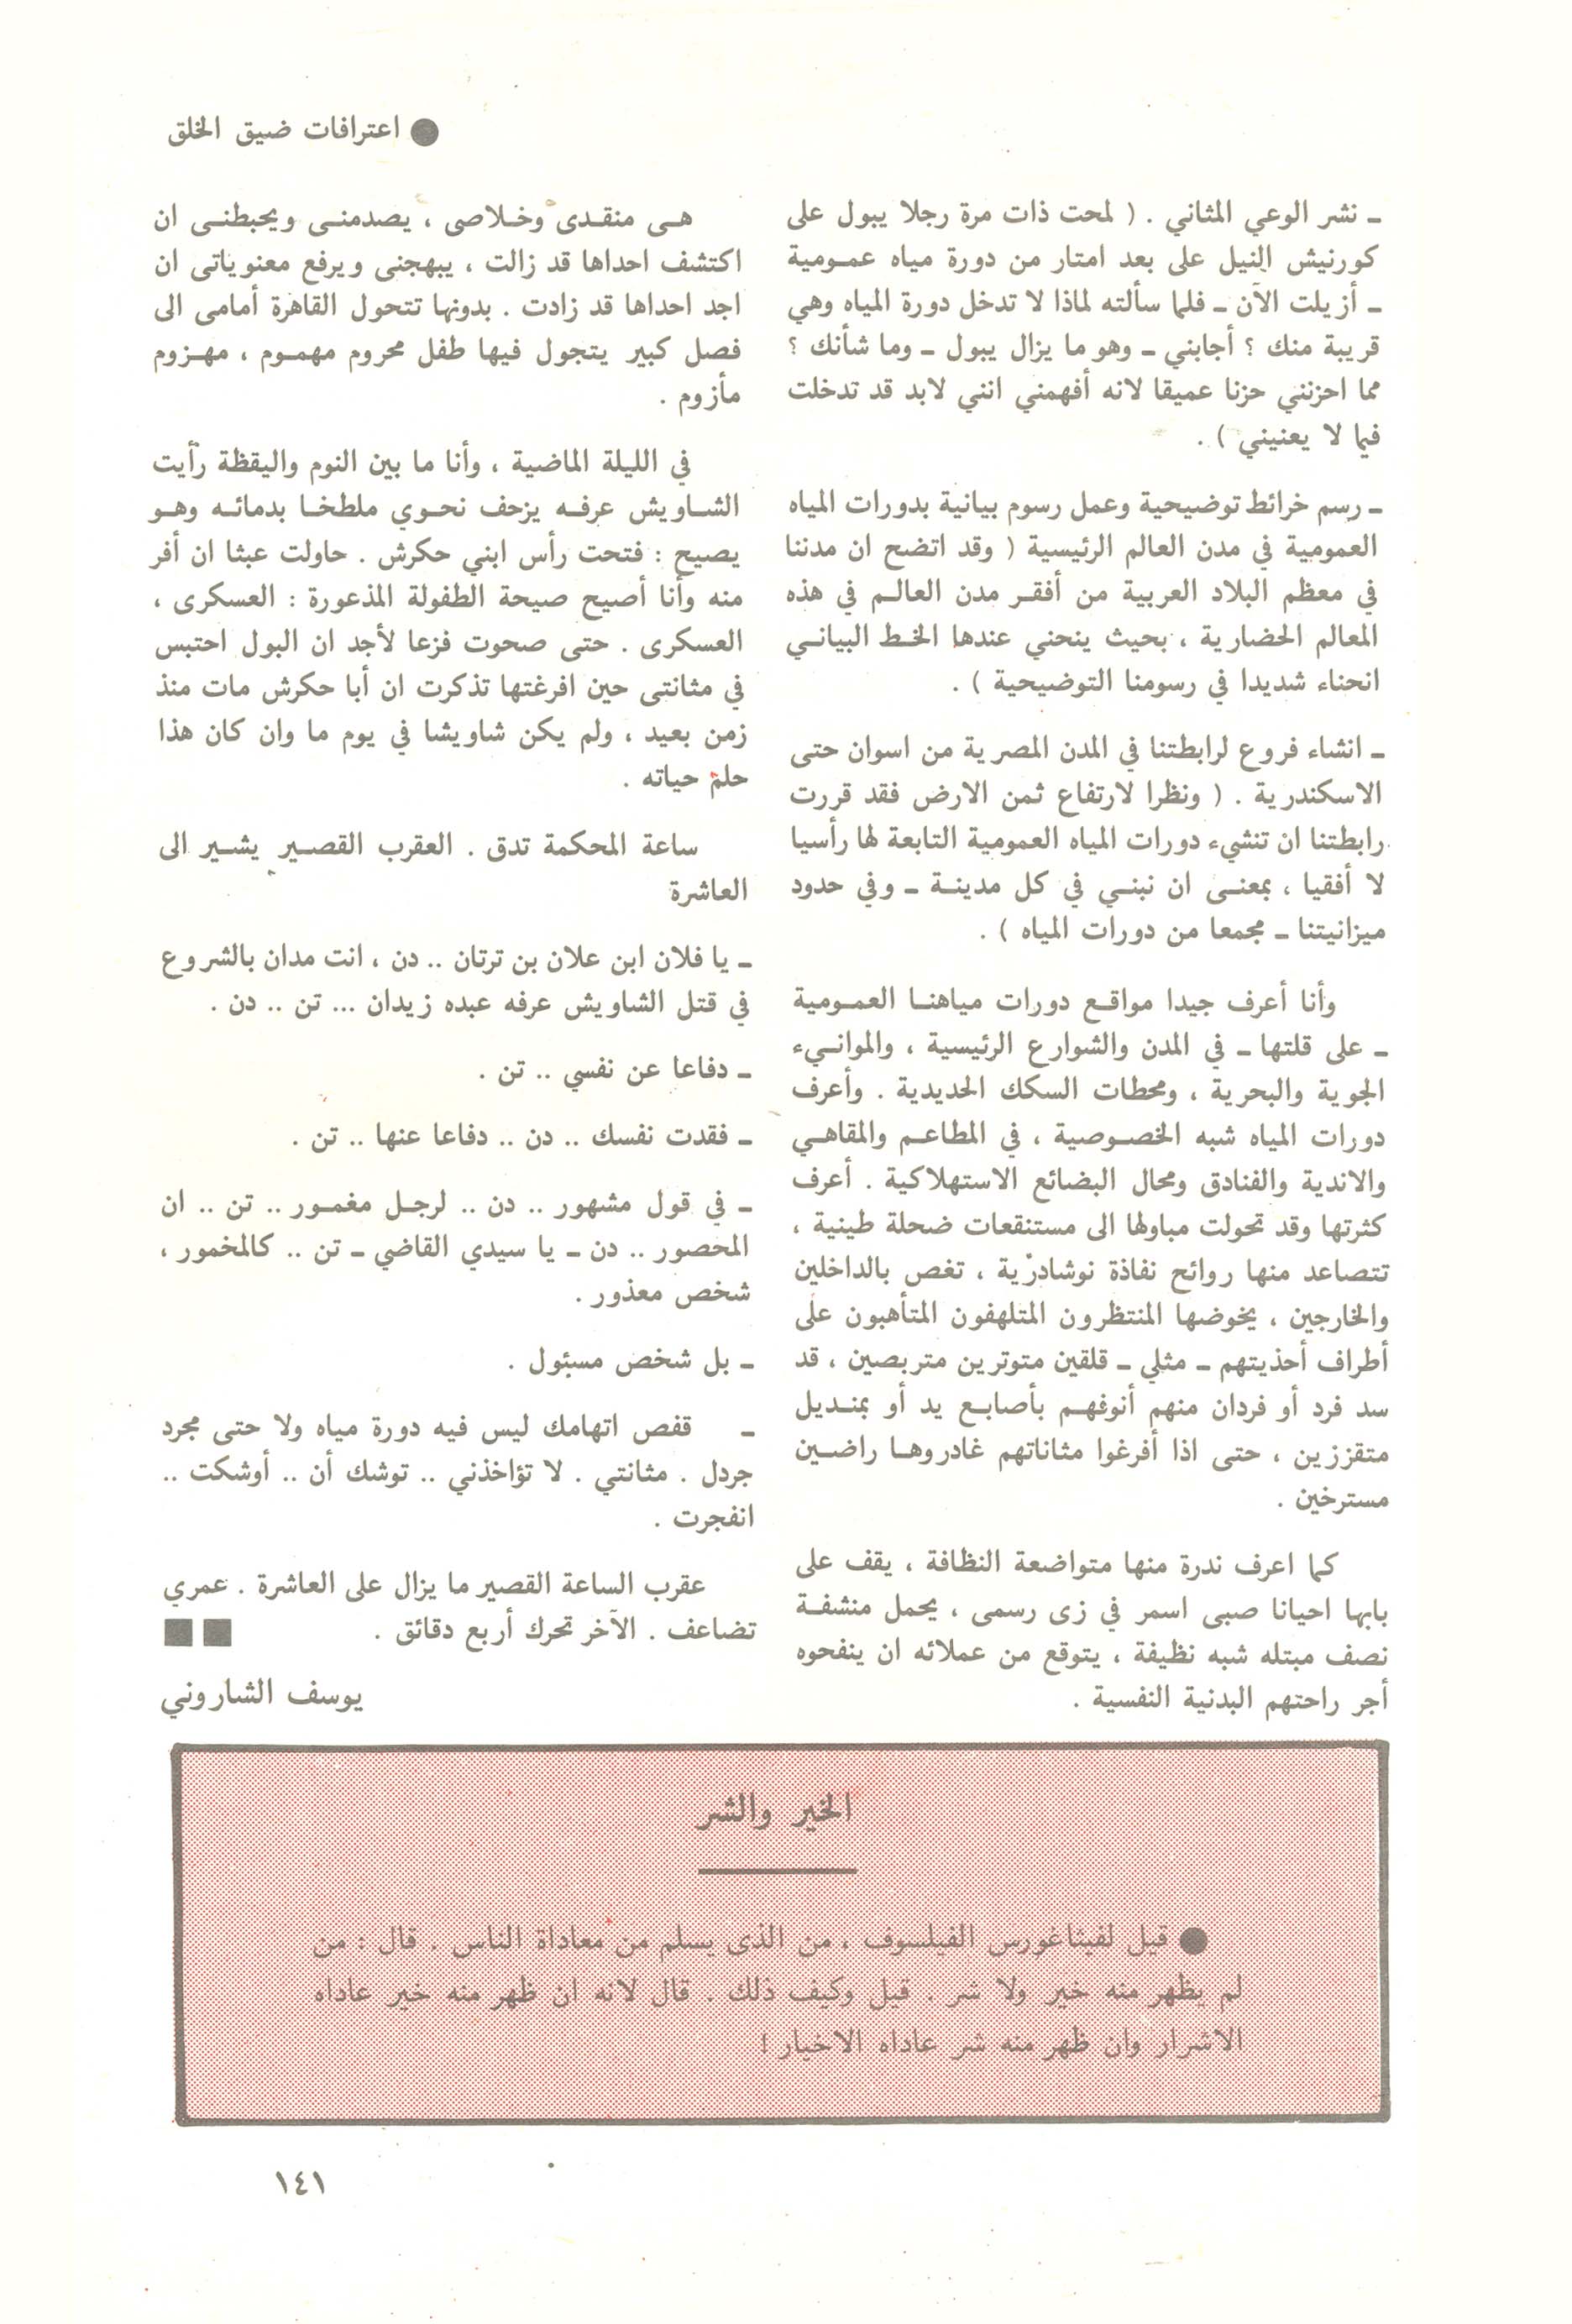 ● اعترافات ضيق الخلق
ـ نشر الوعي المثاني . ( لمحت ذات مرة رجلا يبول على
كورنيش النيل على بعد امتار من دورة مياه عمومية
ـ أزيلت الآن ـ فلما سألته لماذا لا تدخل دورة المياه وهي
قريبة منك ؟ أجابني ـ وهو ما يزال يبول ـ وما شأنك ؟
مما احزنني حزنا عميقا لانه أفهمني انني لابد قد تدخلت
فيما لا يعنيني ) .
ـ رسم خرائط توضيحية وعمل رسوم بيانية بدورات المياه
العمومية في مدن العالم الرئيسية ( وقد اتضح ان مدننا
في معظم البلاد العربية من أفقر مدن العالم في هذه
المعالم الحضارية ، بحيث ينحني عندها الخط البياني
انحناء شديدا في رسومنا التوضيحية ) .
ـ انشاء فروع لرابطتنا في المدن المصرية من اسوان حتى
الاسكندرية . ( ونظرا لارتفاع ثمن الارض فقد قررت
رابطتنا ان تنشيء دورات المياه العمومية التابعة لها رأسيا
لا أفقيا ، بمعنى ان نبني في كل مدينة ـ وفي حدود
ميزانيتنا ـ مجمعا من دورات المياه ) .
وأنا أعرف جيدا مواقع دورات مياهنا العمومية
ـ على قلتها ـ في المدن والشوارع الرئيسية ، والموانيء
الجوية والبحرية ، ومحطات السكك الحديدية . وأعرف
دورات المياه شبه الخصوصية ، في المطاعم والمقاهي
والاندية والفنادق ومحال البضائع الاستهلاكية . أعرف
كثرتها وقد تحولت مباولها الى مستنقعات ضحلة طينية ،
تتصاعد منها روائح نفاذة نوشادرية ، تغص بالداخلين
والخارجين ، يخوضها المنتظرون المتلهفون المتأهبون على
أطراف أحذيتهم ـ مثلي ـ قلقين متوترين متربصين ، قد
سد فرد أو فردان منهم أنوفهم بأصابع يد أو بمنديل
متقززين ، حتى اذا أفرغوا مثاناتهم غادروها راضين
مسترخين .
كما اعرف ندرة منها متواضعة النظافة ، يقف على
بابها احيانا صبى اسمر في زى رسمى ، يحمل منشفة
نصف مبتله شبه نظيفة ، يتوقع من عملائه ان ينفحوه
أجر راحتهم البدنية النفسية .
هى منقدى وخلاصى ، يصدمنى ويحبطنى ان
اكتشف احداها قد زالت ، يبهجنى ويرفع معنوياتى ان
اجد احداها قد زادت . بدونها تتحول القاهرة أمامى الى
فصل كبير يتجول فيها طفل محروم مهموم ، مهزوم
مأزوم .
في الليلة الماضية ، وأنا ما بين النوم واليقظة رأيت
الشاويش عرفه يزحف نحوي ملطخا بدمائه وهو
يصيح : فتحت رأس ابني حكرش . حاولت عبثا ان أفر
منه وأنا أصيح صيحة الطفولة المذعورة : العسكرى ،
العسكرى . حتى صحوت فزعا لأجد ان البول احتبس
في مثانتى حين افرغتها تذكرت ان أبا حكرش مات منذ
زمن بعيد ، ولم يكن شاويشا في يوم ما وان كان هذا
حلم حياته .
ساعة المحكمة تدق . العقرب القصير يشير الى
العاشرة
ـ يا فلان ابن علان بن ترتان .. دن ، انت مدان بالشروع
في قتل الشاويش عرفه عبده زيدان ... تن .. دن .
ـ دفاعا عن نفسي .. تن .
ـ فقدت نفسك .. دن .. دفاعا عنها .. تن .
ـ في قول مشهور .. دن .. لرجل مغمور .. تن .. ان
المحصور .. دن ـ يا سيدي القاضي ـ تن .. كالمخمور ،
شخص معذور .
ـ بل شخص مسئول .
ـ قفص اتهامك ليس فيه دورة مياه ولا حتى مجرد
جردل . مثانتي . لا تؤاخذني .. توشك أن .. أوشكت ..
انفجرت .
عقرب الساعة القصير ما يزال على العاشرة . عمري
تضاعف . الآخر تحرك أربع دقائق . ■■
يوسف الشاروني
الخير والشر
● قيل لفيثاغورس الفيلسوف ، من الذى يسلم من معاداة الناس . قال : من
لم يظهر منه خير ولا شر . قيل وكيف ذلك . قال لانه ان ظهر منه خير عاداه
الاشرار وان ظهر منه شر عاداه الاخيار !
١٤١